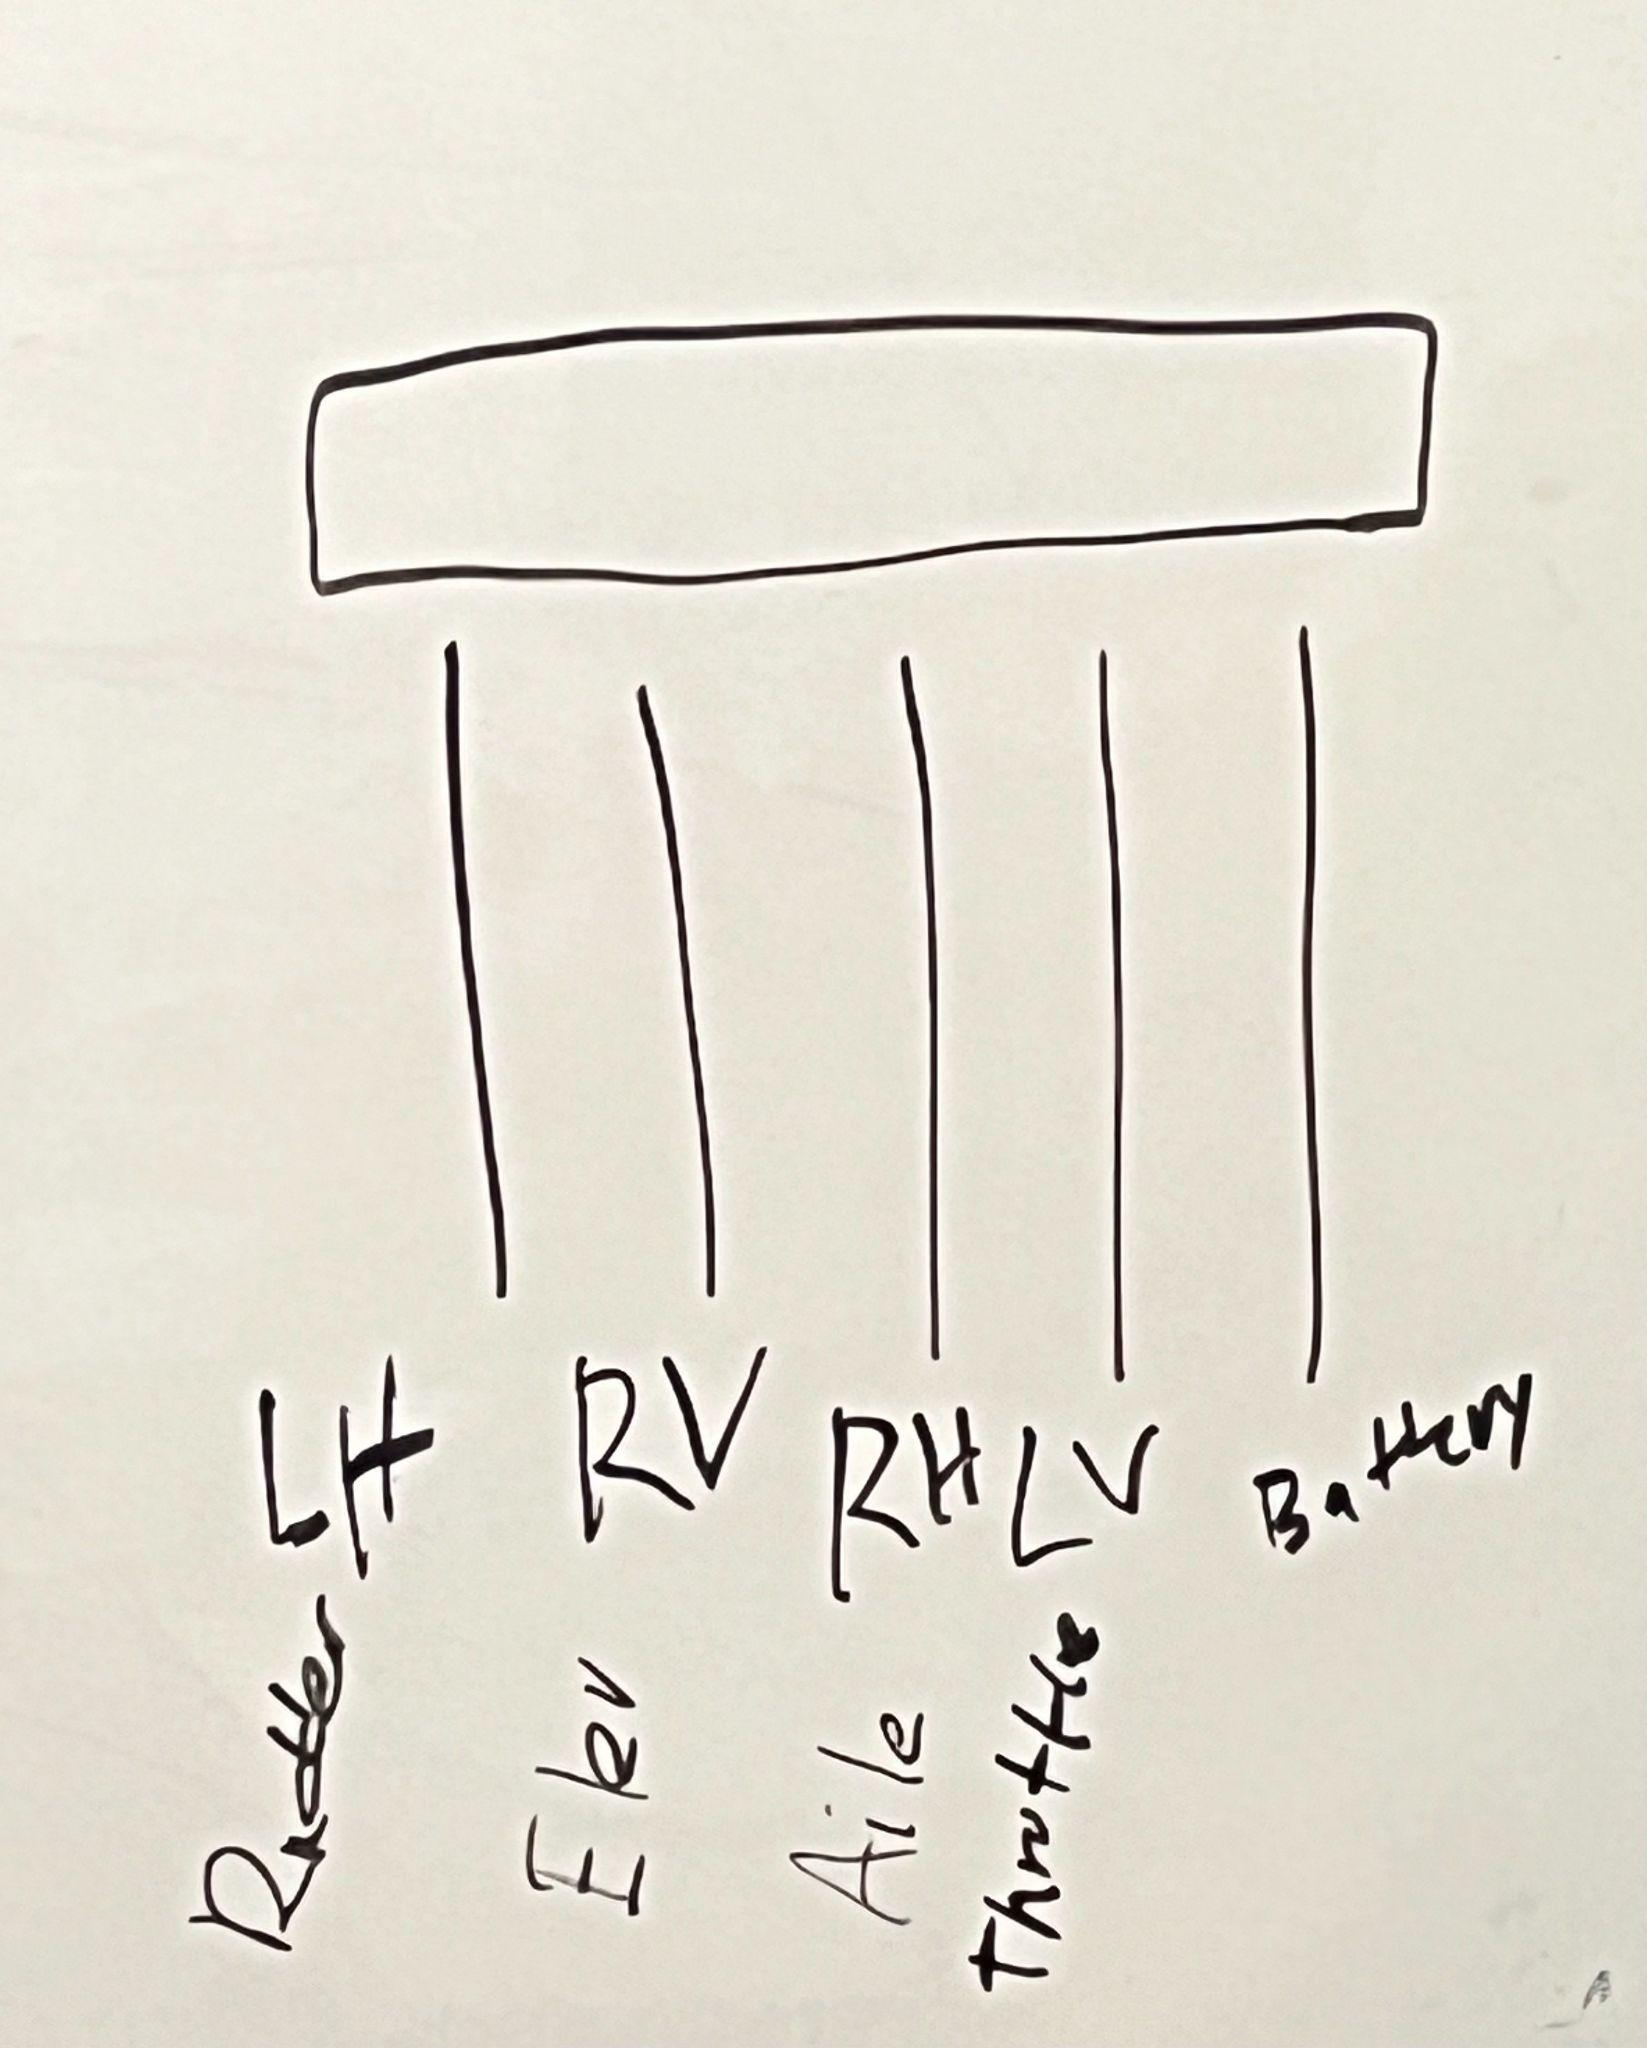 LH RV RH LV Battery
Rudder
Elev
Aile
Throttle